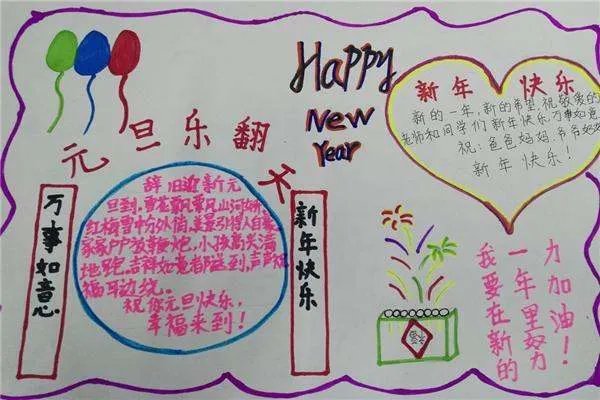 Happy
New
Year
元旦乐翻天
新年 快乐
新的一年,新的希望,祝敬爱的
老师和同学们 新年快乐,万事如意
祝:爸爸妈妈、爷爷奶奶
新年快乐!
万事如意
辞旧迎新元
旦到,雪花飘飘风山河娇,
红梅雪中分外俏,美景引得人自豪
家家户户放鞭炮,小孩高兴满
地跑,吉祥如意都送到,声声祝
福耳边绕。
祝你元旦快乐,
幸福来到!
新年快乐
我要在新的
一年里努
力加油!